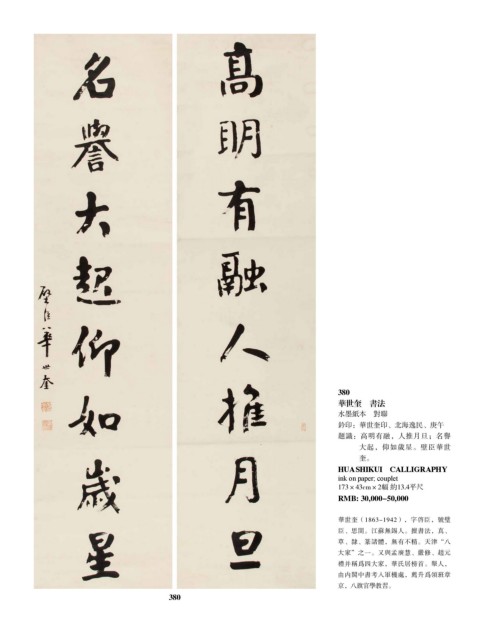 高明有融人推月旦
名譽大超仰如歲星
璧臣華世奎
380
華世奎 書法
水墨紙本 對聯
鈐印:華世奎印、北海逸民、庚午
題識:高明有融,人推月旦;名譽
大起,仰如歲星。璧臣華世
奎。
HUA SHIKUI CALLIGRAPHY
ink on paper; couplet
173×43cm×2幅 約13.4平尺
RMB: 30,000–50,000
華世奎(1863-1942),字啓臣,號璧
臣、思闇。江蘇無錫人。擅書法,真、
草、隸、篆諸體,無有不精。天津“八
大家”之一。又與孟廣慧、嚴修、趙元
禮并稱爲四大家,華氏居榜首。舉人,
由内閣中書考入軍機處,薦升爲領班章
京,八旗官學教習。
380